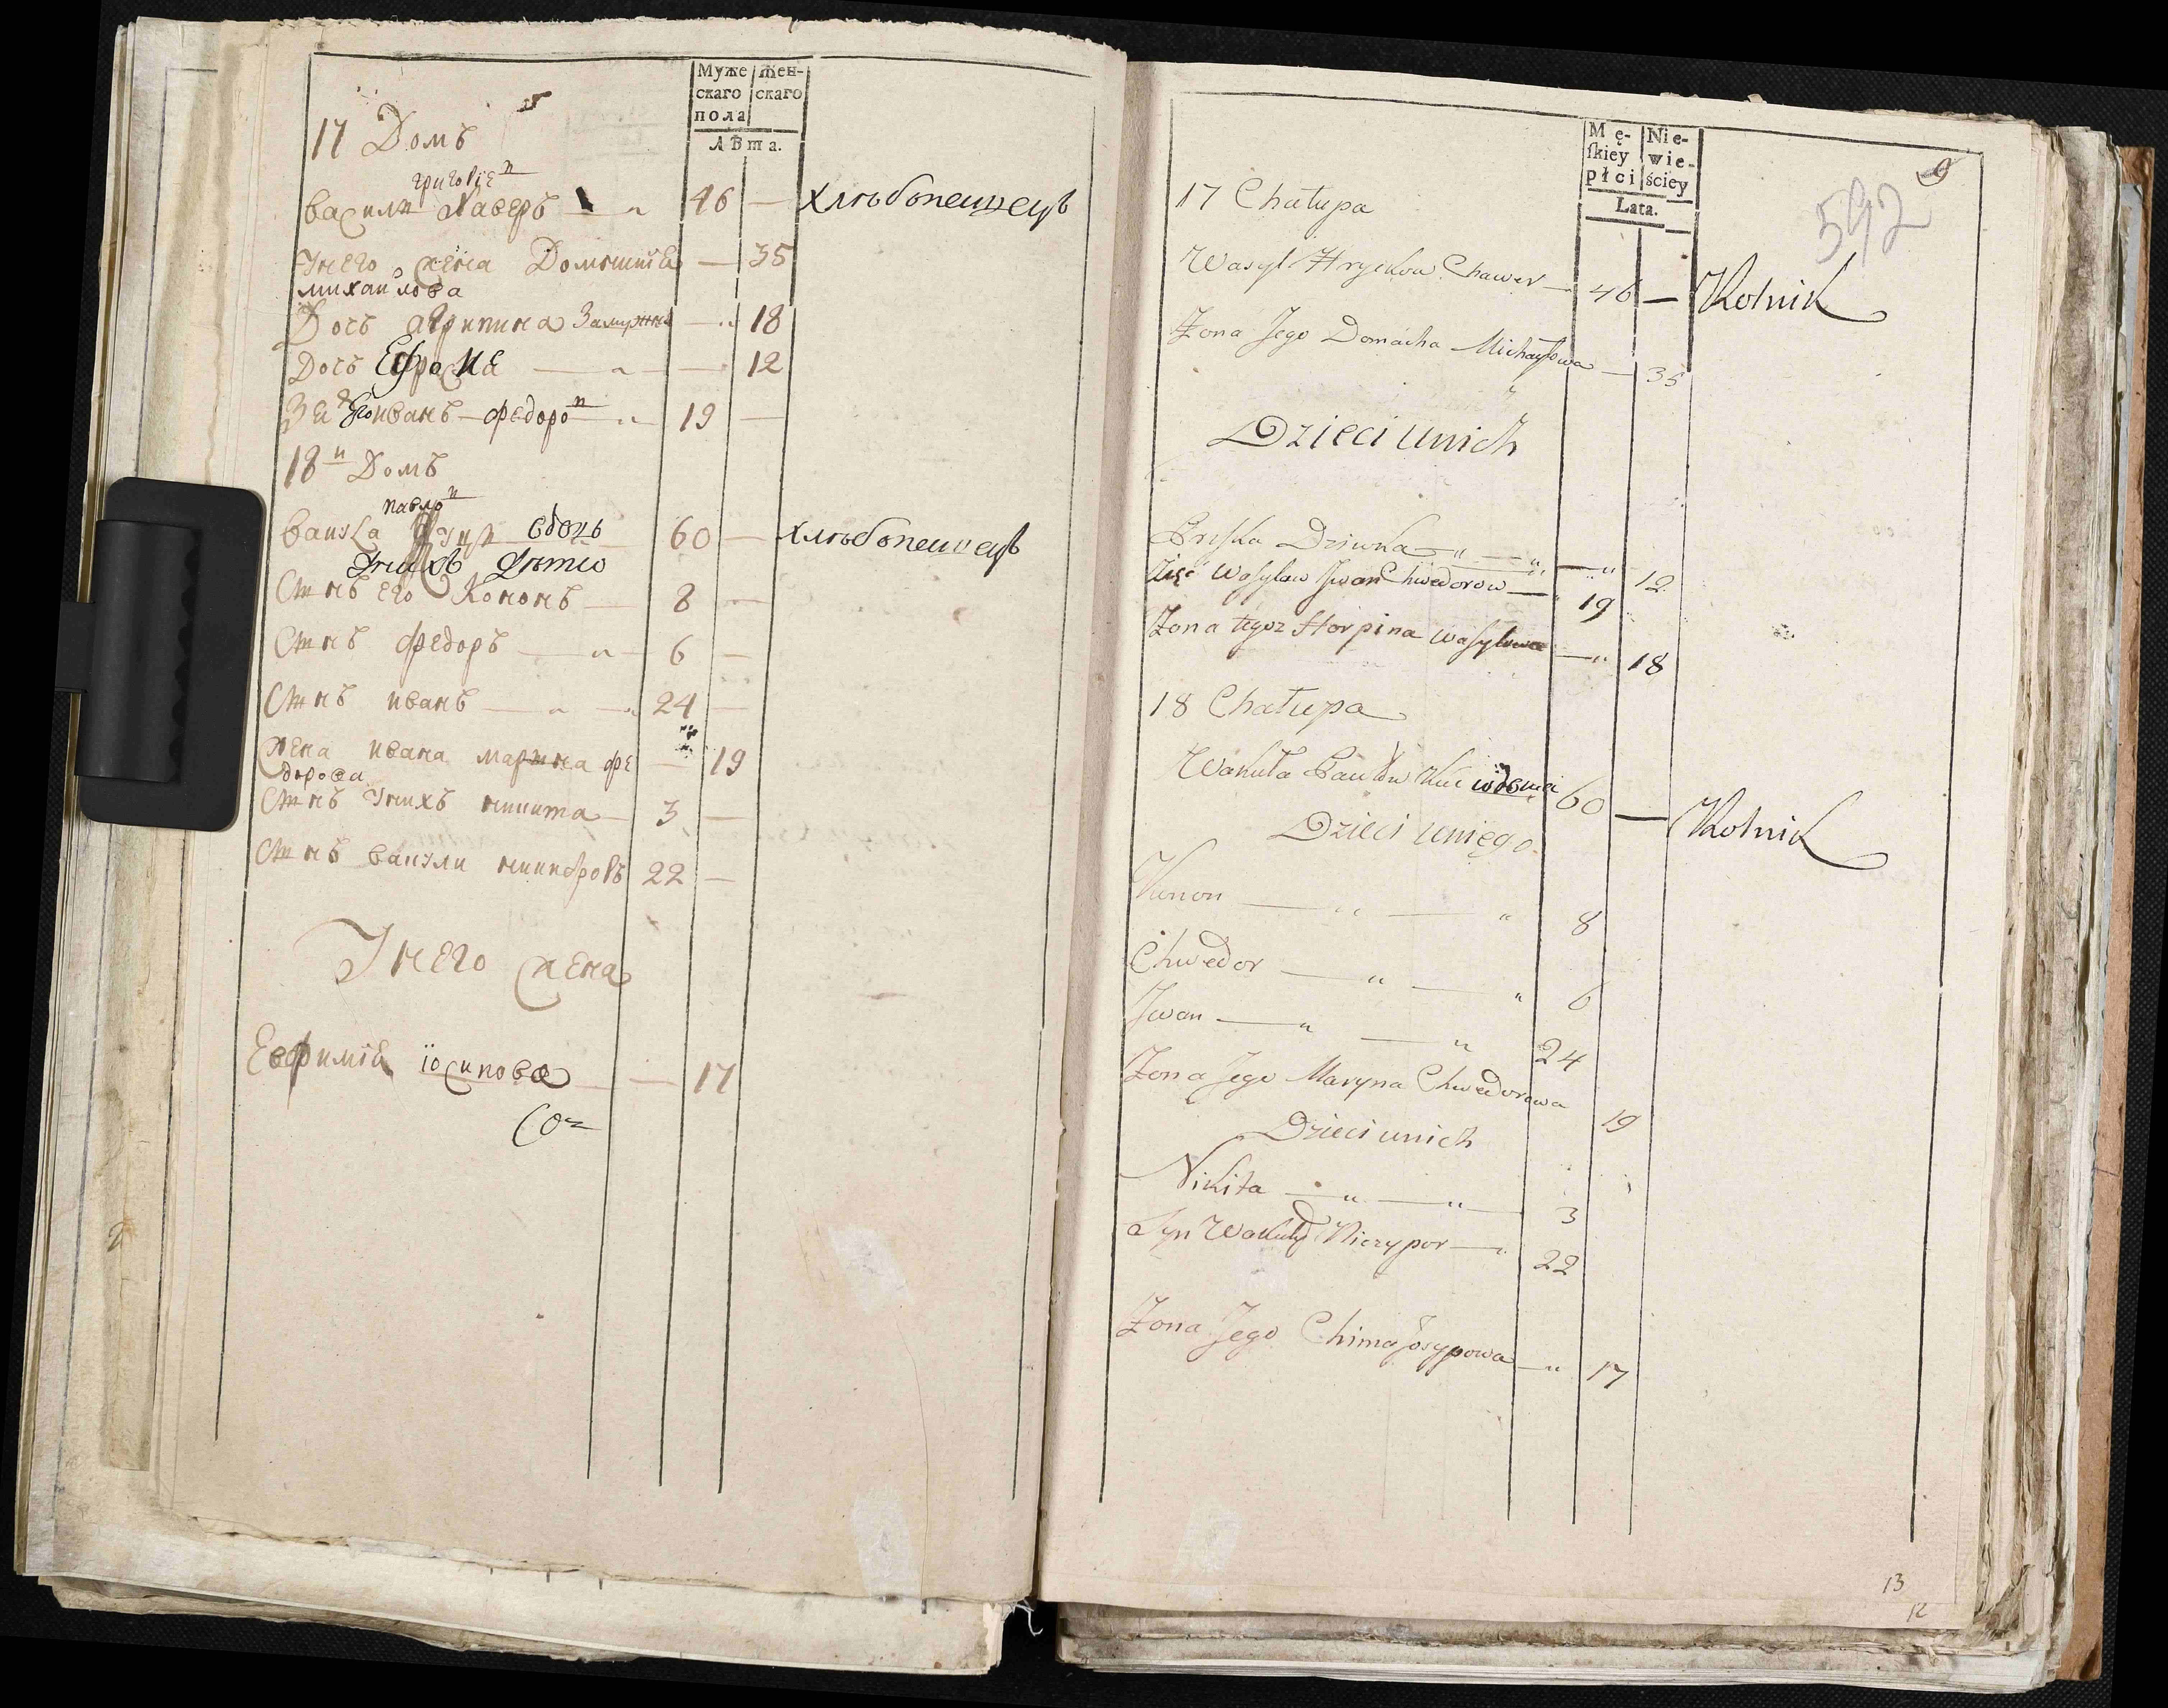 Муже
скаго
пола
Жен-
скаго
Лѣта.
17 Домъ
григорїе п
василя хаверъ 46 — хлѣбопешецъ
Унего жена Домникїя — 35
михайлова
Дочь агрипина Замужня — 18
Дочь — 12
иванъ федоро п 19 —
18 п Домъ
павло п
вакула вдовъ 60 — хлѣбопешецъ
Унихъ Дѣти
Сынъ его Кононъ 8 —
Сынъ федоръ 6 —
Сынъ иванъ 24 —
Жена ивана марина фе — 19
дорова
Сынъ унихъ никита 3 —
Сынъ вакули 22 —
Унего жена
Евфимїя їосипова — 17
Со
Mę-
ſkiey
płci
Nie-
wie-
ściey
Lata.
9
592
17 Chałupa
Wasyl Hryckow Chawer — 46 — Rolnik
Zona Jego Domacha Michayłowa — 35
Dzieci unich
Pryſka Dziwka — 12
Zięć Waſylow Jwan Chwedorow — 19
Zona tegoz Horpina Waſylowa — 18
18 Chałupa
Wakuła Pawłow wdowiec 60 — Rolnik
Dzieci uniego
Kunon — 8
Chwedor — 6
Jwan — 24
Zona Jego Maryna Chwedorowa 19
Dzieci unich
Nikita — 3
Syn Wakuły Niczypor — 22
Zona Jego Chima Josypowa — 17
13
12